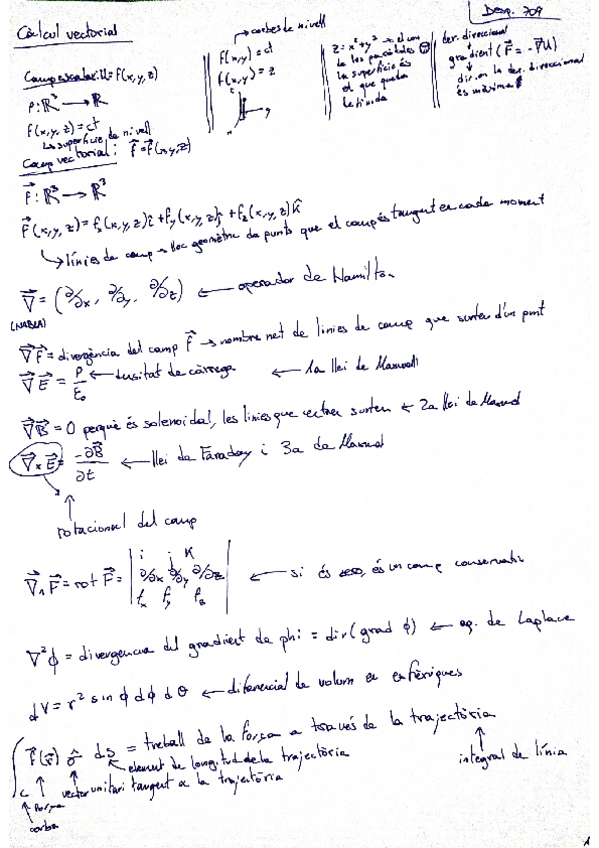 Càlcul vectorial
Desp. 709
→ corbes de nivell
F(x,y) = ct
F(x,y) = z
z = x²+y² →
la superfície és
el que queda
der. direccional
gradient (F⃗ = -∇⃗U)
dir. on la der. direccional
és màxima
Camp escalar: U = f(x,y,z)
ℝ³ → ℝ
f(x,y,z) = ct
↳ superfície de nivell
Camp vectorial: f⃗ = f⃗(x,y,z)
F⃗: ℝ³ → ℝ³
F⃗(x,y,z) = fₓ(x,y,z)î + f_y(x,y,z)ĵ + f_z(x,y,z)k̂
↳ línies de camp → lloc geomètric de punts que el camp és tangent en cada moment
∇⃗ = (∂/∂x, ∂/∂y, ∂/∂z) ← operador de Hamilton
(NABLA)
∇⃗F⃗ = divergència del camp F⃗ → nombre net de línies de camp que surten d'un punt
∇⃗E⃗ = ρ/ε₀ ← densitat de càrrega ← 1a llei de Maxwell
∇⃗B⃗ = 0 perquè és solenoidal, les línies que entren surten ← 2a llei de Maxwell
∇⃗×E⃗ = -∂B⃗/∂t ← llei de Faraday i 3a de Maxwell
rotacional del camp
∇⃗∧F⃗ = rot F⃗ = | i j k
∂/∂x ∂/∂y ∂/∂z
fₓ f_y f_z | ← si és zero, és un camp conservatiu
∇²ϕ = divergencia del gradient de phi = div(grad ϕ) ← eq. de Laplace
dV = r² sin ϕ dϕ dθ ← diferencial de volum en esfèriques
∫ F⃗(r⃗) σ̂ ds = treball de la força a través de la trajectòria
element de longitud de la trajectòria
integral de línia
c ↑ vector unitari tangent a la trajectòria
força
corba
1